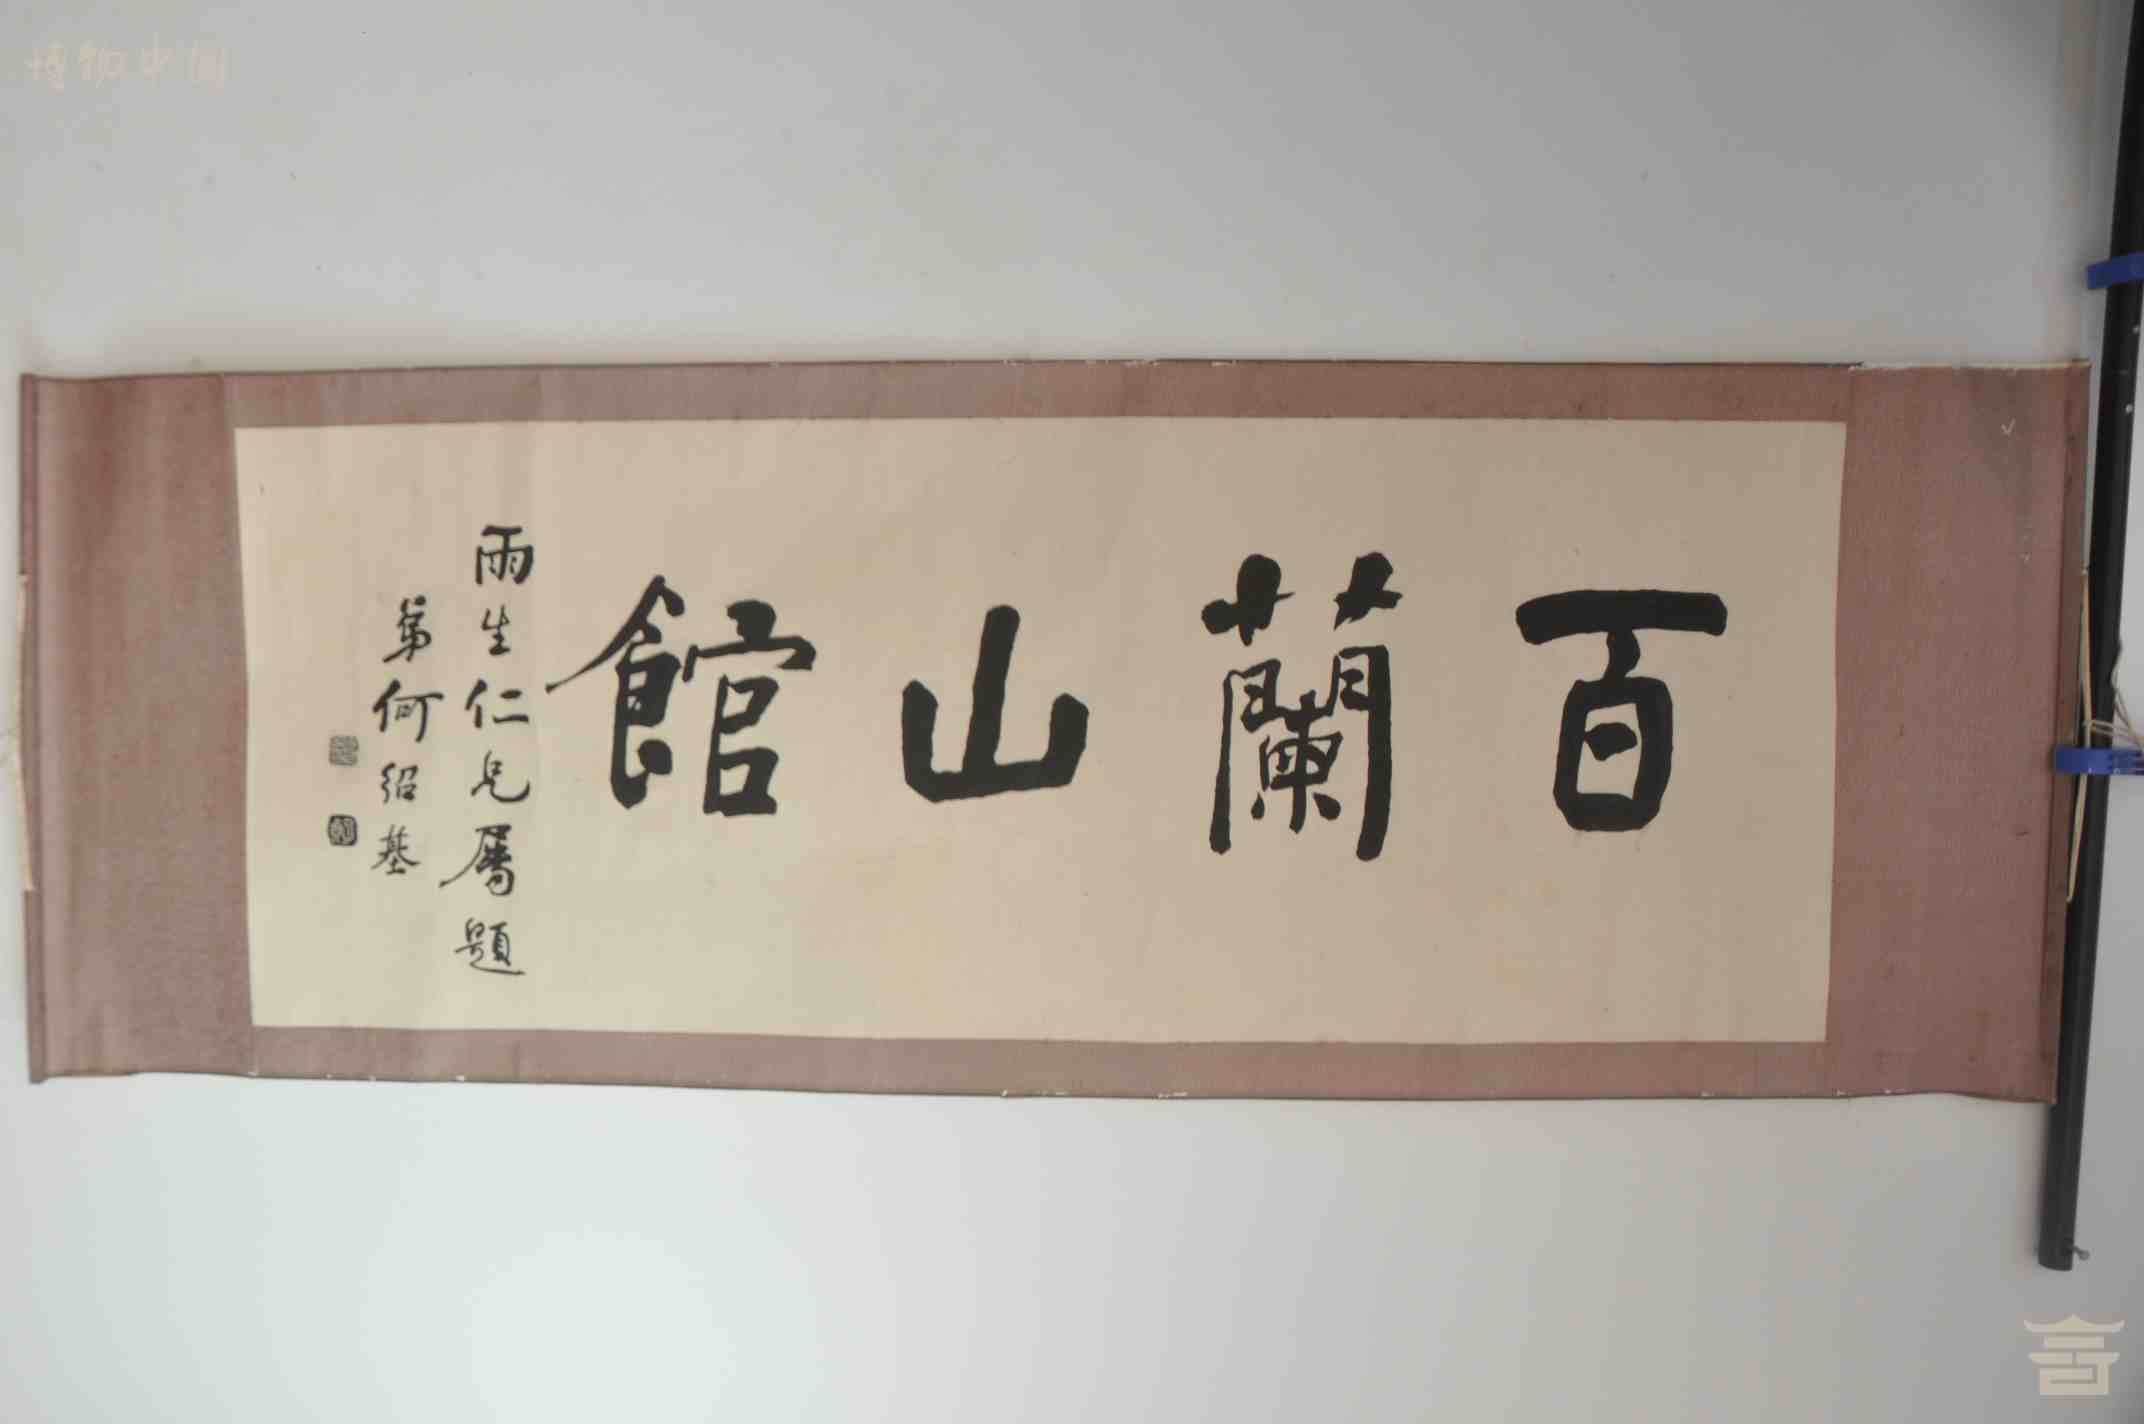 百蘭山館
雨生仁兄屬題
弟何紹基
博物中国